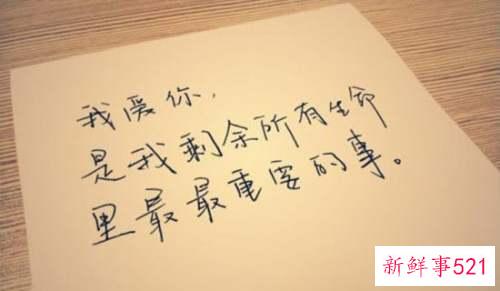 我爱你,
是我剩余所有生命
里最最重要的事。
新鲜事521